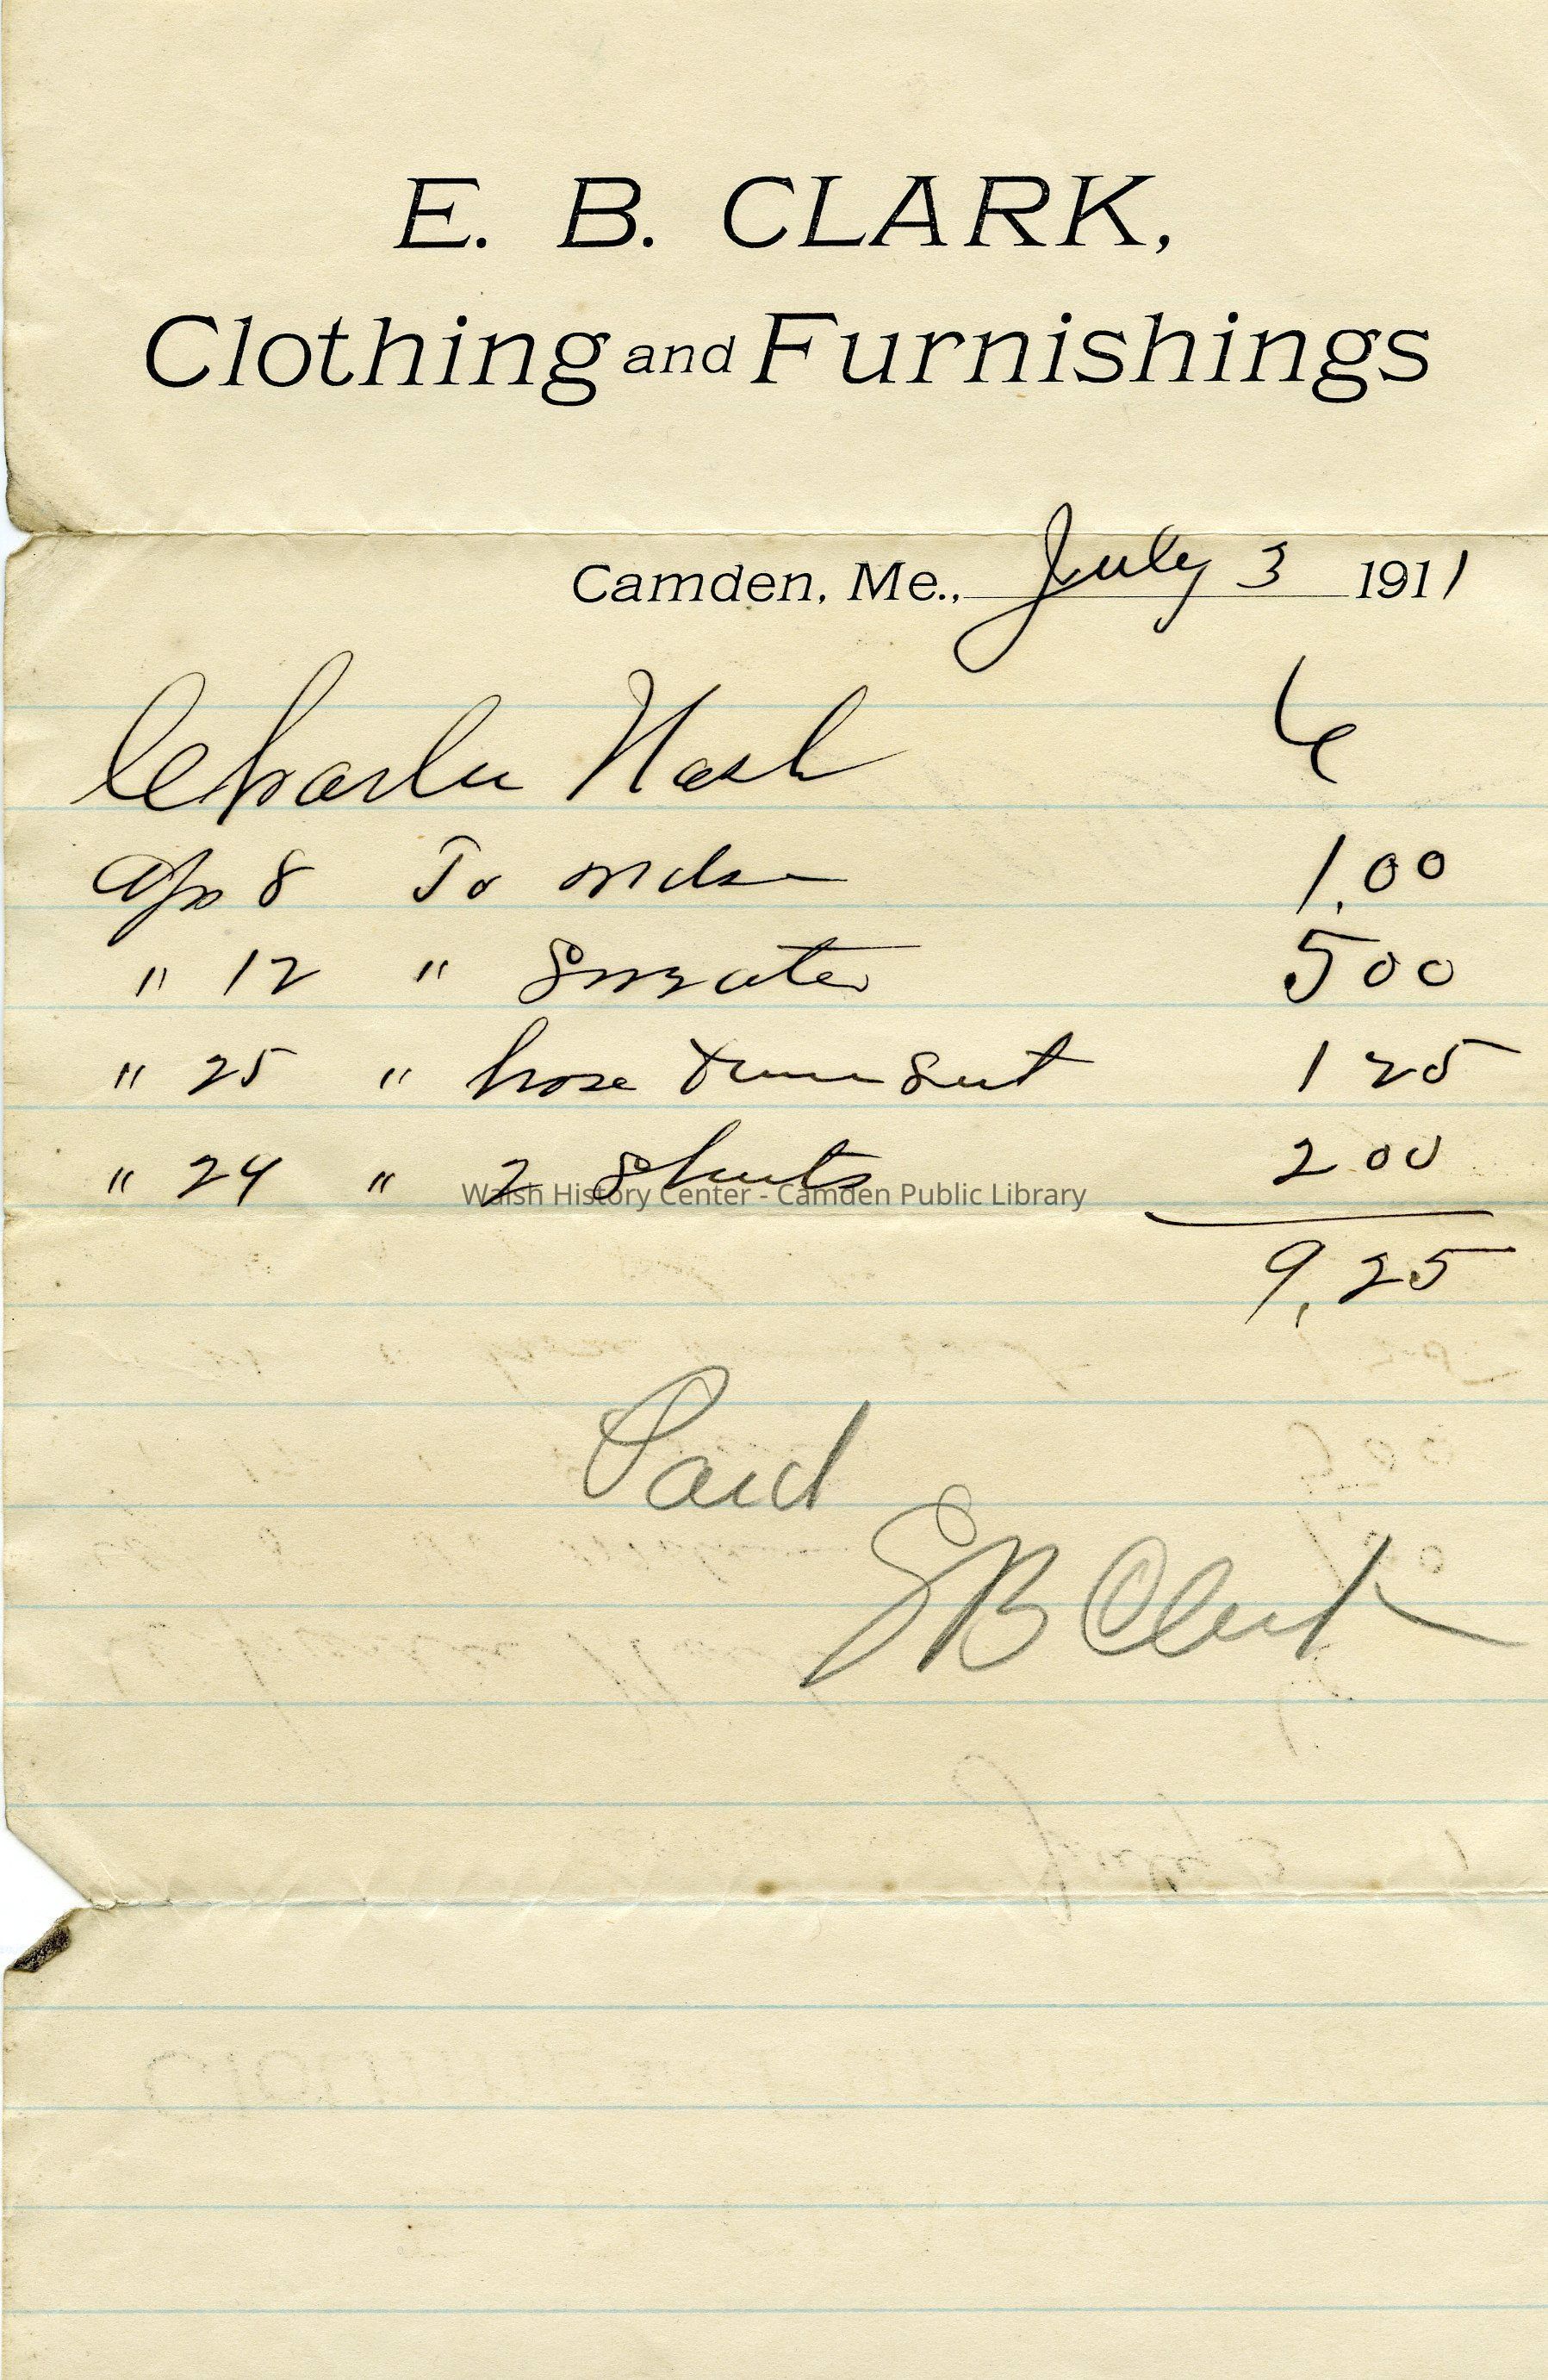 E. B. CLARK,
Clothing and Furnishings
Camden, Me., July 3 1911
Charles Nash
Apr 8 To mdse 1.00
" 12 " Sweater 5 00
" 25 " hose 1 25
" 24 " 2 Shirts 2 00
Walsh History Center - Camden Public Library
9.25
Paid
E B Clark